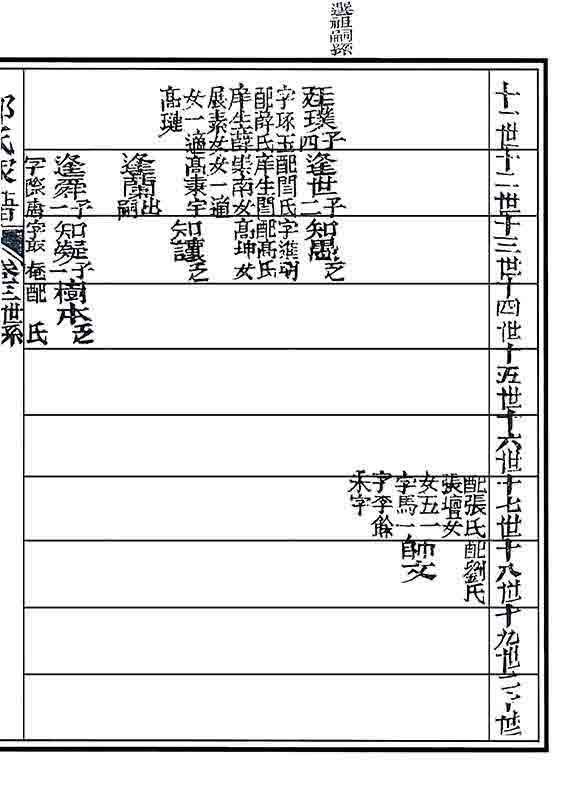 選祖嗣孫
十一世
十二世
十三世
十四世
十五世
十六世
十七世
十八世
十九世
二十世
配張氏
張壇女
女五一
字馬一
字李餘
未字
配劉氏
師文
子四
字琢玉
配薛氏
庠生薛
展素女
女一適
高璉
逢世子二
配閆氏
庠生閆
崇南女
女一適
高秉宇
逢蘭出嗣
逢舜子二
字際唐
知愚乏
字進明
配高氏
高坤女
知讓乏
子一
配 氏
樹本乏
氏家譜
卷三世系